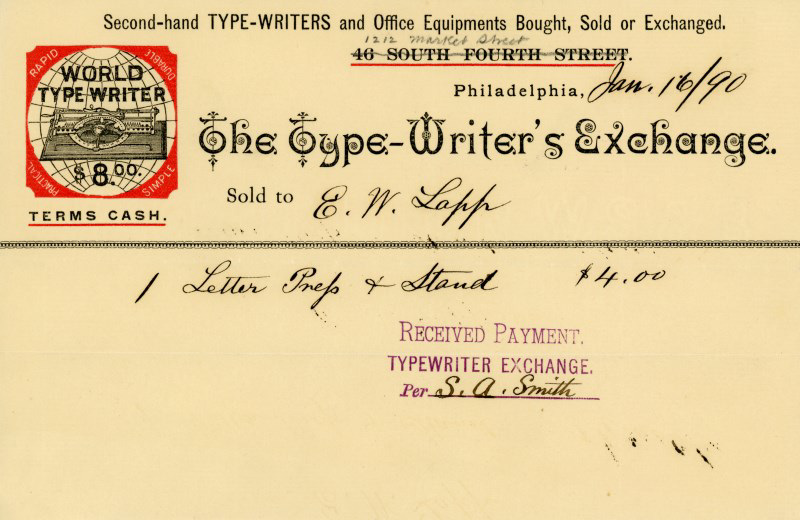 Second-hand TYPE-WRITERS and Office Equipments Bought, Sold or Exchanged.
1212 Market Street
46 SOUTH FOURTH STREET.
Philadelphia, Jan. 16/90
RAPID
DURABLE
WORLD
TYPE WRITER
$8.00.
PRACTICAL
SIMPLE
TERMS CASH.
The Type-Writer's Exchange.
Sold to E. W. Lapp
1 Letter Press & Stand $4.00
RECEIVED PAYMENT.
TYPEWRITER EXCHANGE.
Per S. A. Smith